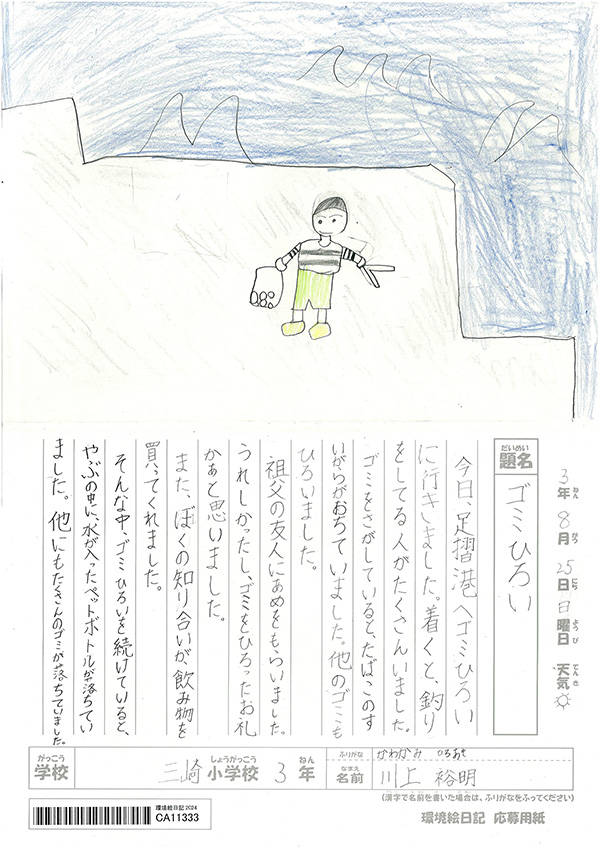 3年 8月 25日 日曜日 天気
ねん がつ にち ようび てんき
だいめい
題名 ゴミひろい
今日、足摺港へゴミひろい
に行きしました。着くと、釣り
をしてる人がたくさんいました。
ゴミをさがしていると、たばこのす
いがらがおちていました。他のゴミも
ひろいました。
祖父の友人にあめをもらいました。
うれしかったし、ゴミをひろったお礼
かあと思いました。
また、ぼくの知り合いが、飲み物を
買ってくれました。
そんな中、ゴミひろいを続けていると、
やぶの中に、水が入ったペットボトルが落ちてい
ました。他にもたくさんのゴミが落ちていました。
がっこう しょうがっこう ねん
学校 三崎 小学校 3年
ふりがな かわかみ ひろあき
なまえ
名前 川上 裕明
(漢字で名前を書いた場合は、ふりがなをふってください)
環境絵日記2024
CA11333
環境絵日記 応募用紙